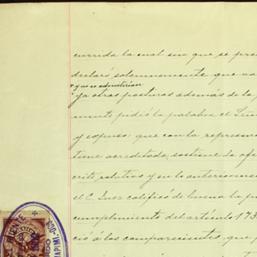 currida la cual sin que se pre
declaró solemnemente que no
y que se admitirían
ya otras posturas además de la
mente pidió la palabra el
y expuso que con la represen
tiene acreditada, sostiene la ofe
crito relativo y en la anterior
el C. Juez calificó de buena la p
cumplimiento del artículo 173
ció á los comparecientes, que p
MAPIMI.